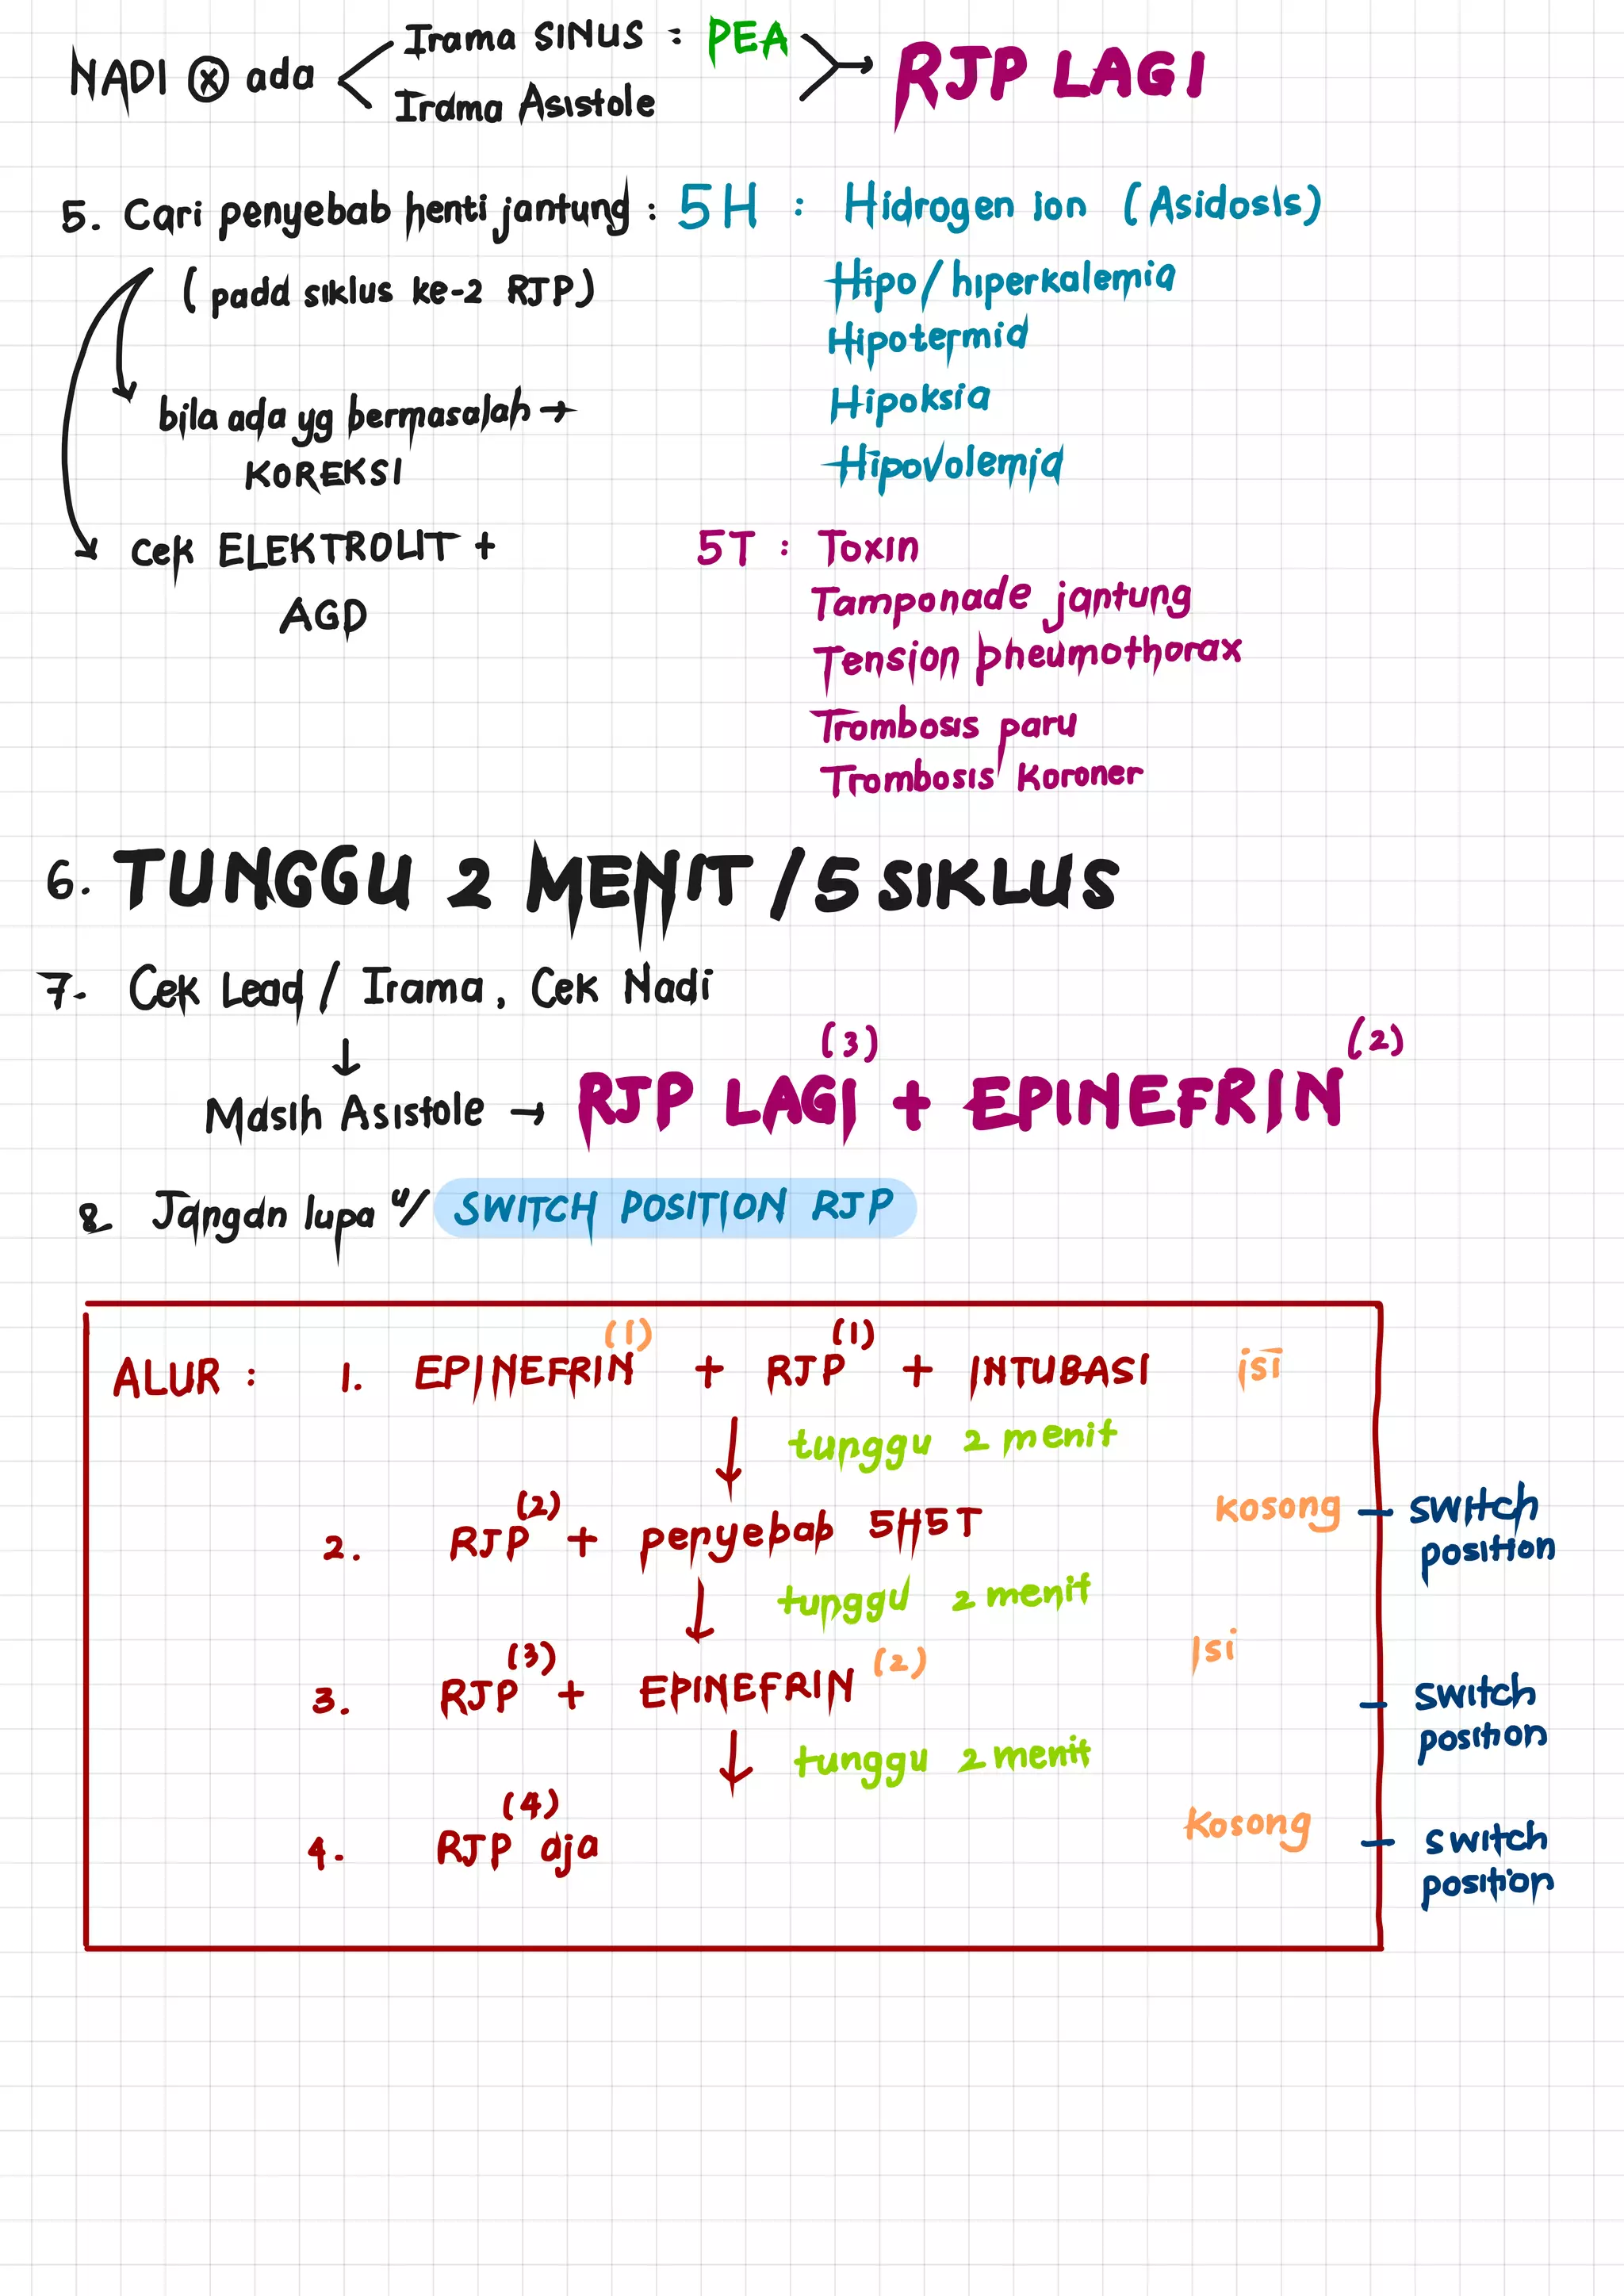 NADI ⊗ ada < Irama SINUS : PEA > → RJP LAGI
Irama Asistole
5. Cari penyebab henti jantung : 5H : Hidrogen ion (Asidosis)
(pada siklus ke-2 RJP)
Hipo/hiperkalemia
Hipotermia
bila ada yg bermasalah →
KOREKSI
Hipoksia
Hipovolemia
cek ELEKTROLIT +
AGD
5T : Toxin
Tamponade jantung
Tension pneumothorax
Trombosis paru
Trombosis koroner
6. TUNGGU 2 MENIT / 5 SIKLUS
7. Cek Lead / Irama, Cek Nadi
↓
Masih Asistole → RJP LAGI (3) + EPINEFRIN (2)
8. Jangan lupa u/ SWITCH POSITION RJP
ALUR : 1. EPINEFRIN (1) + RJP (1) + INTUBASI isi
↓ tunggu 2 menit
2. RJP (2) + penyebab 5H5T kosong - switch position
↓ tunggu 2 menit
3. RJP (3) + EPINEFRIN (2) Isi - switch position
↓ tunggu 2 menit
4. RJP (4) aja Kosong - switch position